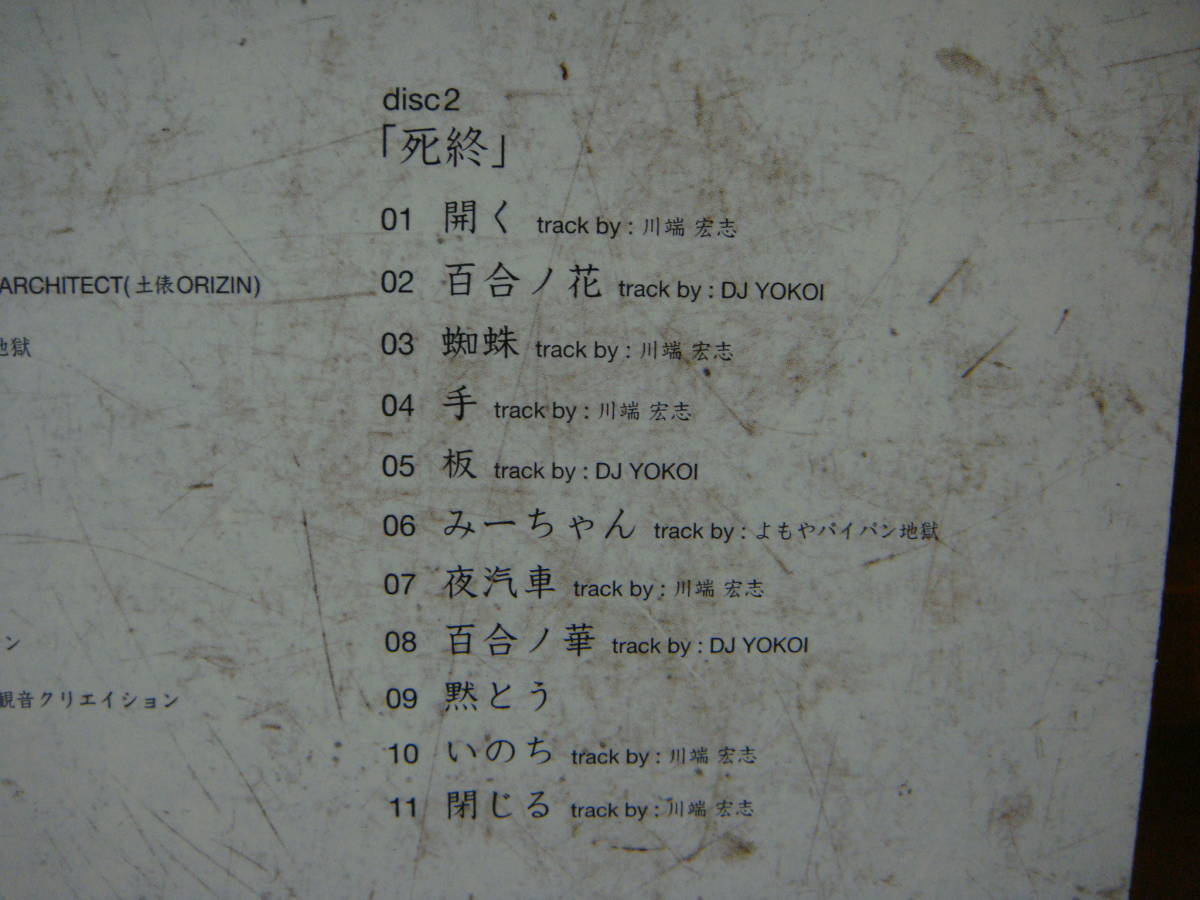 ARCHITECT(土俵ORIZIN)
地獄
ン
観音クリエイション
disc2
「死終」
01 開く track by : 川端 宏志
02 百合ノ花 track by : DJ YOKOI
03 蜘蛛 track by : 川端 宏志
04 手 track by : 川端 宏志
05 板 track by : DJ YOKOI
06 みーちゃん track by : よもやパイパン地獄
07 夜汽車 track by : 川端 宏志
08 百合ノ華 track by : DJ YOKOI
09 黙とう
10 いのち track by : 川端 宏志
11 閉じる track by : 川端 宏志